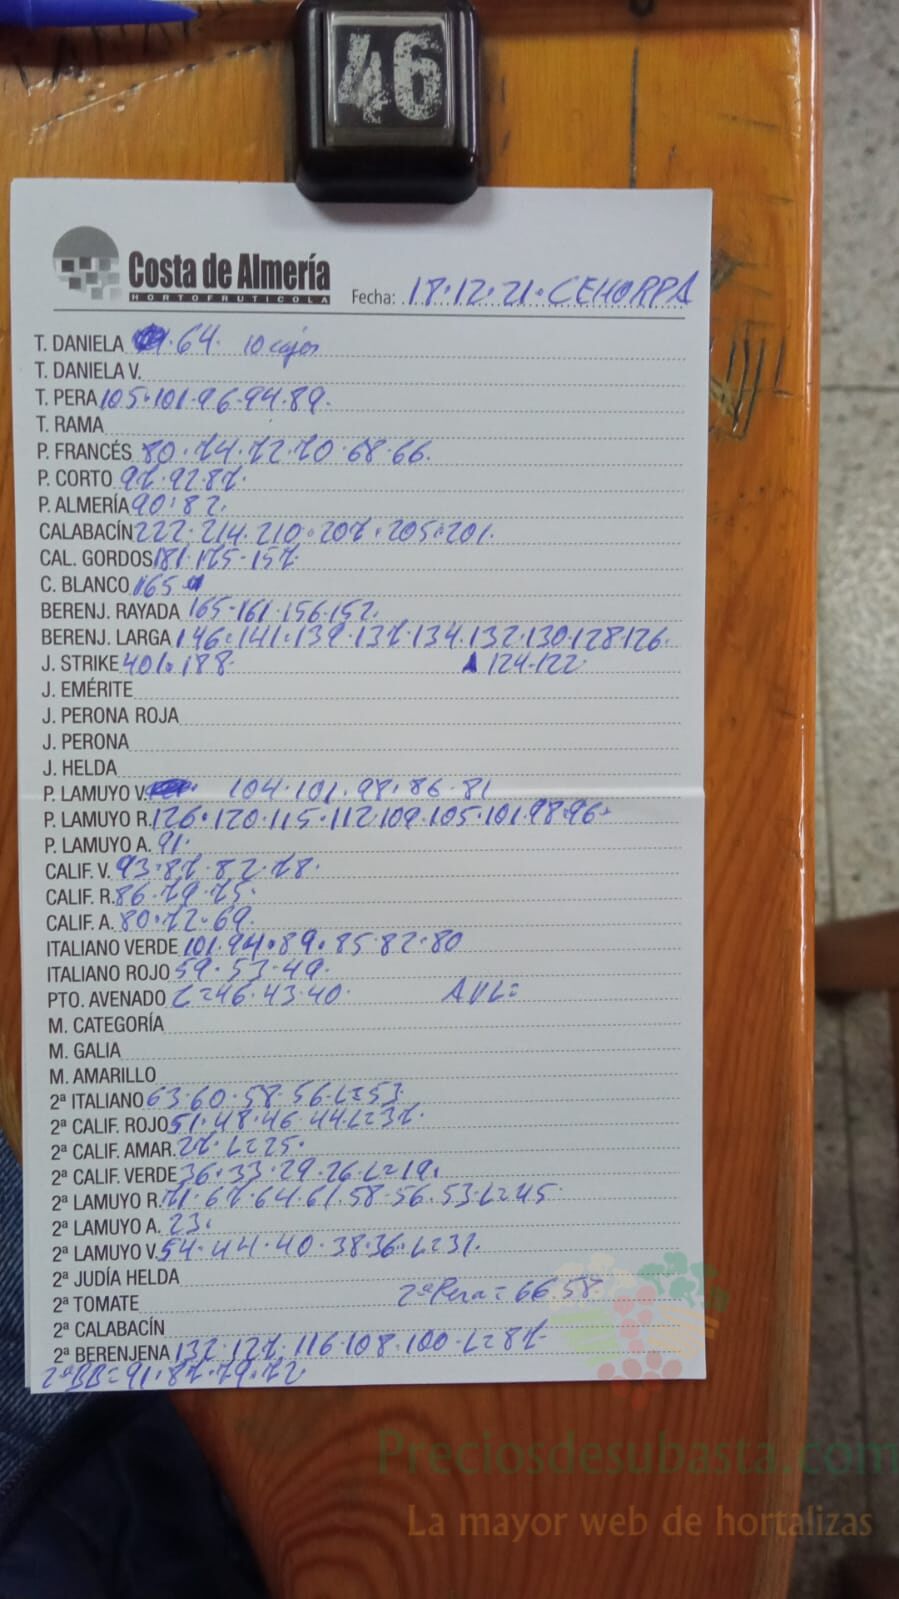 46
Costa de Almería
HORTOFRUTICOLA
Fecha: 18.12.21. CEHORPA
T. DANIELA 64. 10 cajas
T. DANIELA V.
T. PERA 105.101.96.94.89.
T. RAMA
P. FRANCÉS 80.74.72.70.68.66.
P. CORTO 97.92.87.
P. ALMERÍA 90.82.
CALABACÍN 222.214.210.207.205.201.
CAL. GORDOS 181.175-157
C. BLANCO 165
BERENJ. RAYADA 165-161.156.152.
BERENJ. LARGA 146.141.139.137.134.132.130.128.126.
J. STRIKE 401.188. 124.122
J. EMÉRITE
J. PERONA ROJA
J. PERONA
J. HELDA
P. LAMUYO V. 104.101.98.86.81
P. LAMUYO R. 126.120.115.112.109.105.101.98.96.
P. LAMUYO A. 91.
CALIF. V. 93.87.82.78.
CALIF. R. 86.79.75.
CALIF. A. 80.72.69.
ITALIANO VERDE 101.94.89.85.82.80
ITALIANO ROJO 59.53.49.
PTO. AVENADO L=46.43.40. AVL=
M. CATEGORÍA
M. GALIA
M. AMARILLO
2ª ITALIANO 63.60.58.56.L=53.
2ª CALIF. ROJO 51.48.46.44.L=37.
2ª CALIF. AMAR. 27.L=25.
2ª CALIF. VERDE 36.33.29.26.L=19.
2ª LAMUYO R. 71.67.64.61.58.56.53.L=45
2ª LAMUYO A. 23.
2ª LAMUYO V. 54.44.40.38.36.L=31.
2ª JUDÍA HELDA
2ª TOMATE 2ª Pera=66.58
2ª CALABACÍN
2ª BERENJENA 132.127.116.108.100.L=87
2ª BB=91.87.79.72
Preciosdesubasta.com
La mayor web de hortalizas